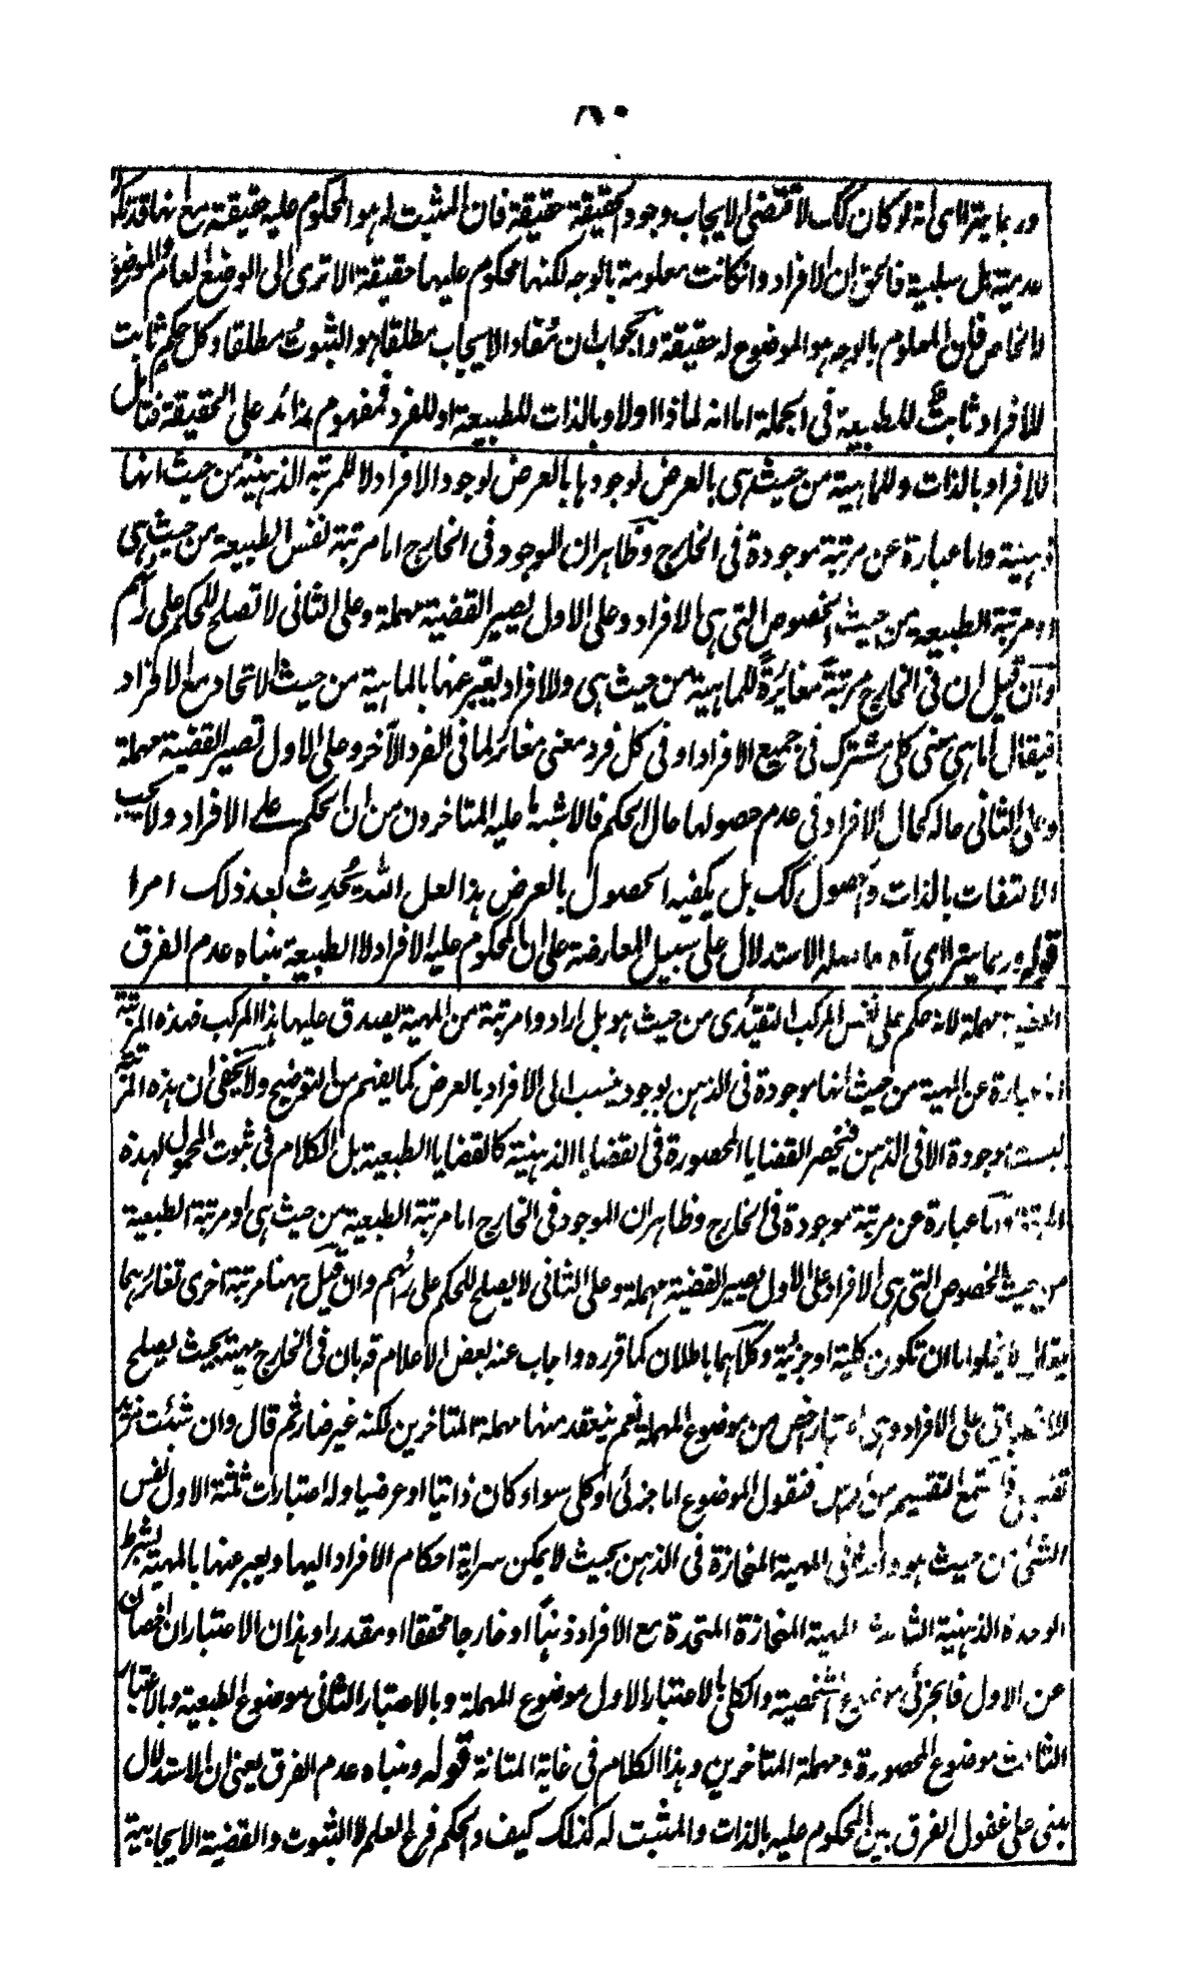 ٨٠
وربما يتراأى انه لو كان كك لاقتضى الايجاب وجود الحقيقة حقيقة فان المثبت له هو المحكوم عليه حقيقة مع انها قد تكون
عدمية بل سلبية فالحق ان الافراد وانكانت معلومة بالوجه لكنها محكوم عليها حقيقة الا ترى الى الوضع العام والموضوع
له الخاص فان المعلوم بالوجه هو الموضوع له حقيقة والجواب ان مفاد الايجاب مطلقا هو الثبوت مطلقا وكل حكم ثابت
للافراد ثابت للطبيعة في الجملة اما انه لماذا اولا وبالذات للطبيعة او للفرد فمفهوم زائد على الحقيقة فتأمل
للافراد بالذات وللماهية من حيث هى بالعرض لوجودها بالعرض لوجود الافراد لا للمرتبه الذهنية من حيث انها
ذهنية واما عبارة عن مرتبة موجودة فى الخارج وظاهر ان الموجود فى الخارج اما مرتبة نفس الطبيعة من حيث هى
او مرتبة الطبيعة من حيث الخصوص التى هى الافراد وعلى الاول يصير القضية مهملة وعلى الثانى لا تصلح للحكم على رأيهم
وان قيل ان فى الخارج مرتبة مغائرة للماهية من حيث هى والافراد يعبر عنها بالماهية من حيث الاتحاد مع الافراد
فيقال اما هى معنى كلى مشترك فى جميع الافراد او فى كل فرد معنى مغائر لما فى الفرد الآخر وعلى الاول تصير القضية مهملة
وعلى الثانى حاله كحال الافراد فى عدم حصولها حال الحكم فالاشبه ما عليه المتاخرون من ان الحكم على الافراد ولا يجب
الالتفات بالذات والحصول كك بل يكفيه الحصول بالعرض هذا لعل الله يحدث بعد ذلك امرا
قوله وربما يتراأى آه ما نصله الاستدلال على سبيل المعارضة على ان المحكوم عليه الافراد لا الطبيعة مبناه عدم الفرق
القضية مهملة لانه حكم على نفس المركب التقيدى من حيث هو بل ارادوا مرتبة من المهية يصدق عليها هذا المركب فهذه المرتبة
اما عبارة عن المهية من حيث انها موجودة فى الذهن بوجود منسب الى الافراد بالعرض كما يفهم من التوضيح ولا يخفى ان هذه المرتبة
ليست موجودة الا فى الذهن فينحصر القضايا المحصورة فى القضايا الذهنية كالقضايا الطبعية بل الكلام فى ثبوت المحمول لهذه
المرتبة واما عبارة عن مرتبة موجودة فى الخارج وظاهر ان الموجود فى الخارج اما مرتبة الطبعية من حيث هى او مرتبة الطبعية
من حيث الخصوص التى هى الافراد على الاول يصير القضية مهملة وعلى الثانى لا يصلح للحكم على رأيهم وان قيل ههنا مرتبة اخرى تغائرهما
يقال لا يخلوا ما ان تكون كلية او جزئية وكلاهما باطلان كما قرره واجاب عنه بعض الاعلام قه بان فى الخارج مهية بحيث يصلح
على الافراد وهى اخص من موضوع المهملة نعم ينعقد منها مهملة المتاخرين لكنه غير ضار ثم قال وان شئت
فاستمع التقسيم من فنقول الموضوع اما جزئى او كلى سواء كان ذاتيا او عرضيا وله اعتبارات ثلثة الاول نفس
الشئ من حيث هو والثانى المهية المنحازة فى الذهن بحيث لا يمكن سراية احكام الافراد اليها ويعبر عنها بالمهية بشرط
الوحدة الذهنية الثالث المهية المنحازة المتحدة مع الافراد ذهنا او خارجا محققا او مقدرا وهذان الاعتباران اخصان
عن الاول فالجزئى موضوع الشخصية والكلى بالاعتبار الاول موضوع المهملة وبالاعتبار الثانى موضوع الطبعية وبالاعتبار
الثالث موضوع المحصورة ومهملة المتاخرين وهذا الكلام فى غاية المتانة قوله ومبناه عدم الفرق يعنى ان الاستدلال
يبنى على غفول الفرق بين المحكوم عليه بالذات والمثبت له كذلك كيف والحكم فرع العلم لا الثبوت والقضية الايجابية